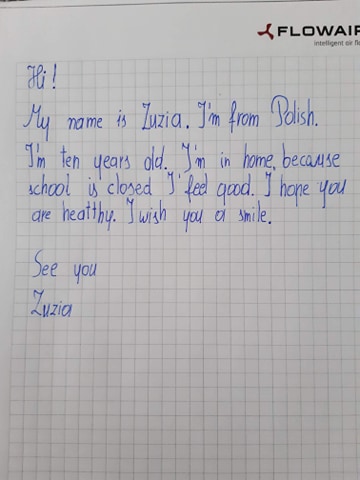 FLOWAIR
intelligent air fl
Hi!
My name is Zuzia. I'm from Polish.
I'm ten years old. I'm in home, because
school is closed I feel good. I hope you
are healthy. I wish you a smile.
See you
Zuzia